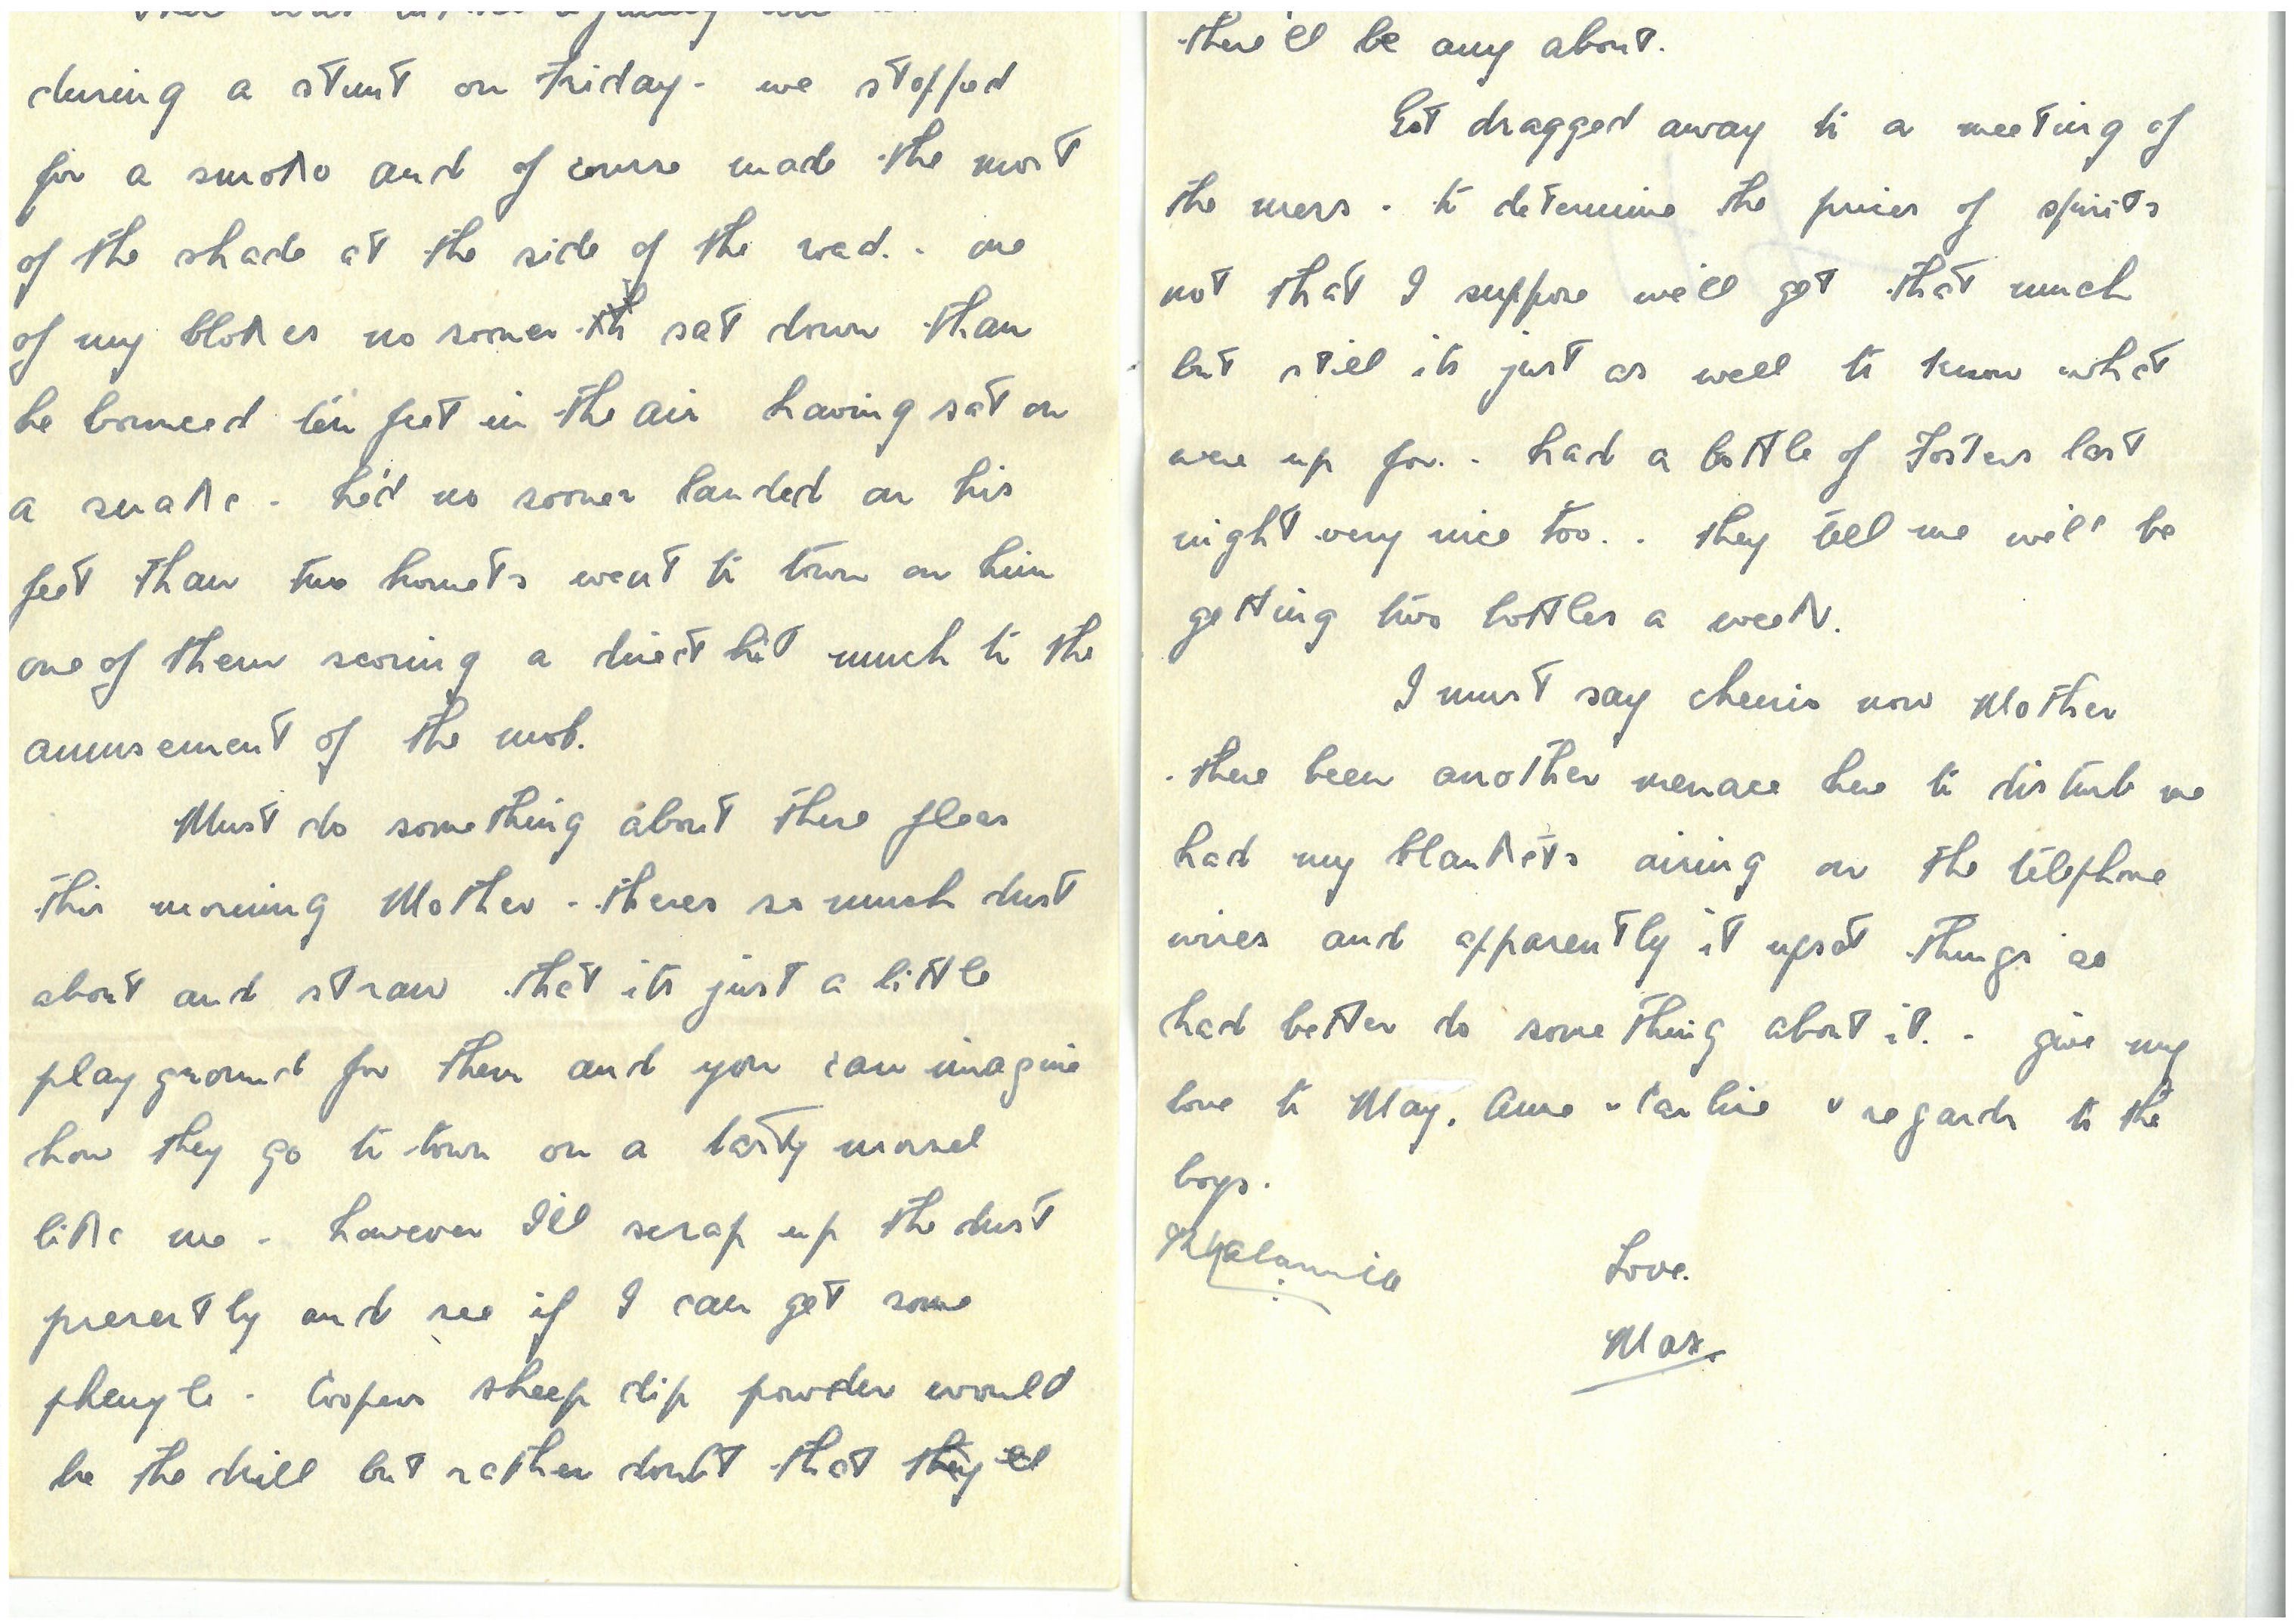 during a stunt on Friday - we stopped
for a smoke and of course made the most
of the shade at the side of the road. - one
of my blokes no sooner sat down than
he bounced ten feet in the air having sat on
a snake - he'd no sooner landed on his
feet than two hornets went to town on him
one of them scoring a direct hit much to the
amusement of the mob.
Must do something about these fleas
this morning Mother - theres so much dust
about and straw that its just a little
play ground for them and you can imagine
how they go to town on a tasty morsel
like me - however I'll scrap up the dust
presently and see if I can get some
phenyle - Coopers sheep dip powder would
be the drill but rather doubt that
there'll be any about.
Got dragged away to a meeting of
the mess - to determine the prices of spirits
not that I suppose we'll get that much
but still its just as well to know what
were up for. - had a bottle of Fosters last
night very nice too. - they tell me we'll be
getting two bottles a week.
I must say cheerio now Mother
there been another menace here to disturb me
had my blankets airing on the telephone
wires and apparently it upset things so
had better do something about it. - give my
love to May, Anne & regards to the
boys.
Love.
Max.